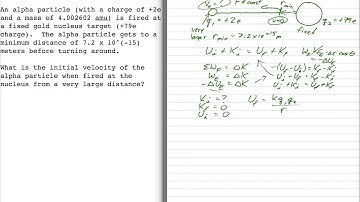 An alpha particle (with a charge of +2e
and a mass of 4.002602 amu) is fired at
a fixed gold nucleus target (+79e
charge). The alpha particle gets to a
minimum distance of 7.2 x 10^(-15)
meters before turning around.
What is the initial velocity of the
alpha particle when fired at the
nucleus from a very large distance?
r_min
v=0
q_1=+2e
q_2=+79e
very
large
r_min=7.2×10^-15 m
fixed
U_i + K_i = U_f + K_f
ΣW_c = ΔK
W_c = ΔK
-ΔU_c = ΔK
-(U_f-U_i)=K_f-K_i
U_i-U_f=K_f-K_i
U_i+K_i=U_f+K_f
K_i = ?
K_f = 0
U_i = 0
U_f = kq_1q_2/r